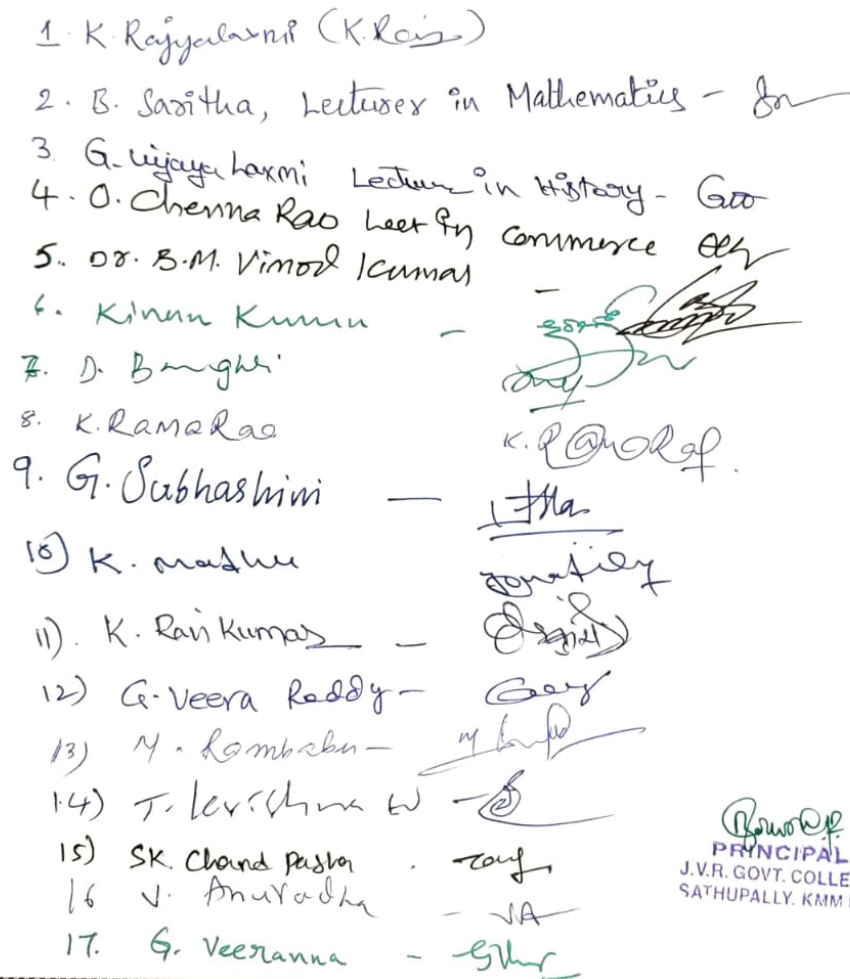 1. K. Rajyalaxmi (K. Raj)
2. B. Saritha, Lecturer in Mathematics -
3. G. Vijaya Laxmi Lecturer in History -
4. O. Chenna Rao Lect in Commerce
5. Dr. B.M. Vinod Kumar -
6. Kiran Kumar -
7. D.
8. K. Rama Rao K.
9. G. Subhashini —
10) K. Madhu
11). K. Ravi Kumar -
12) G. Veera Reddy -
13) M. Rambabu - M
14) T. Krishna -
15) SK. Chand Pasha .
16 V. Anuradha - VA
17. G. Veeranna -
PRINCIPAL
J.V.R. GOVT. COLLE
SATHUPALLY. KMM